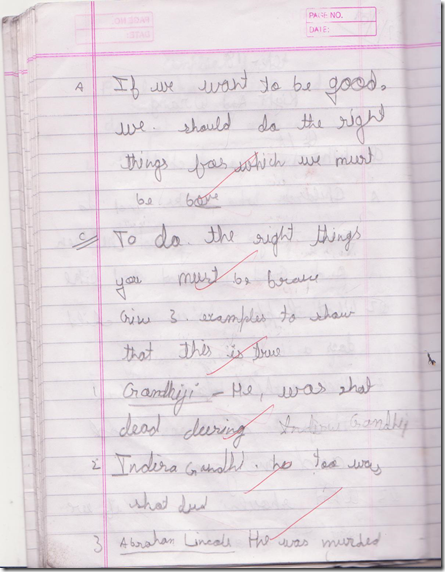 PAGE NO.
DATE:
A If we want to be good.
we. should do the right
things for which we must
be
C To do. the right things
you must be brave
Give 3. examples to show
that this is true
1. Gandhiji - He, was shot
dead
2 Indira Gandhi. he too was
shot
3 Abraham Lincole He was murded